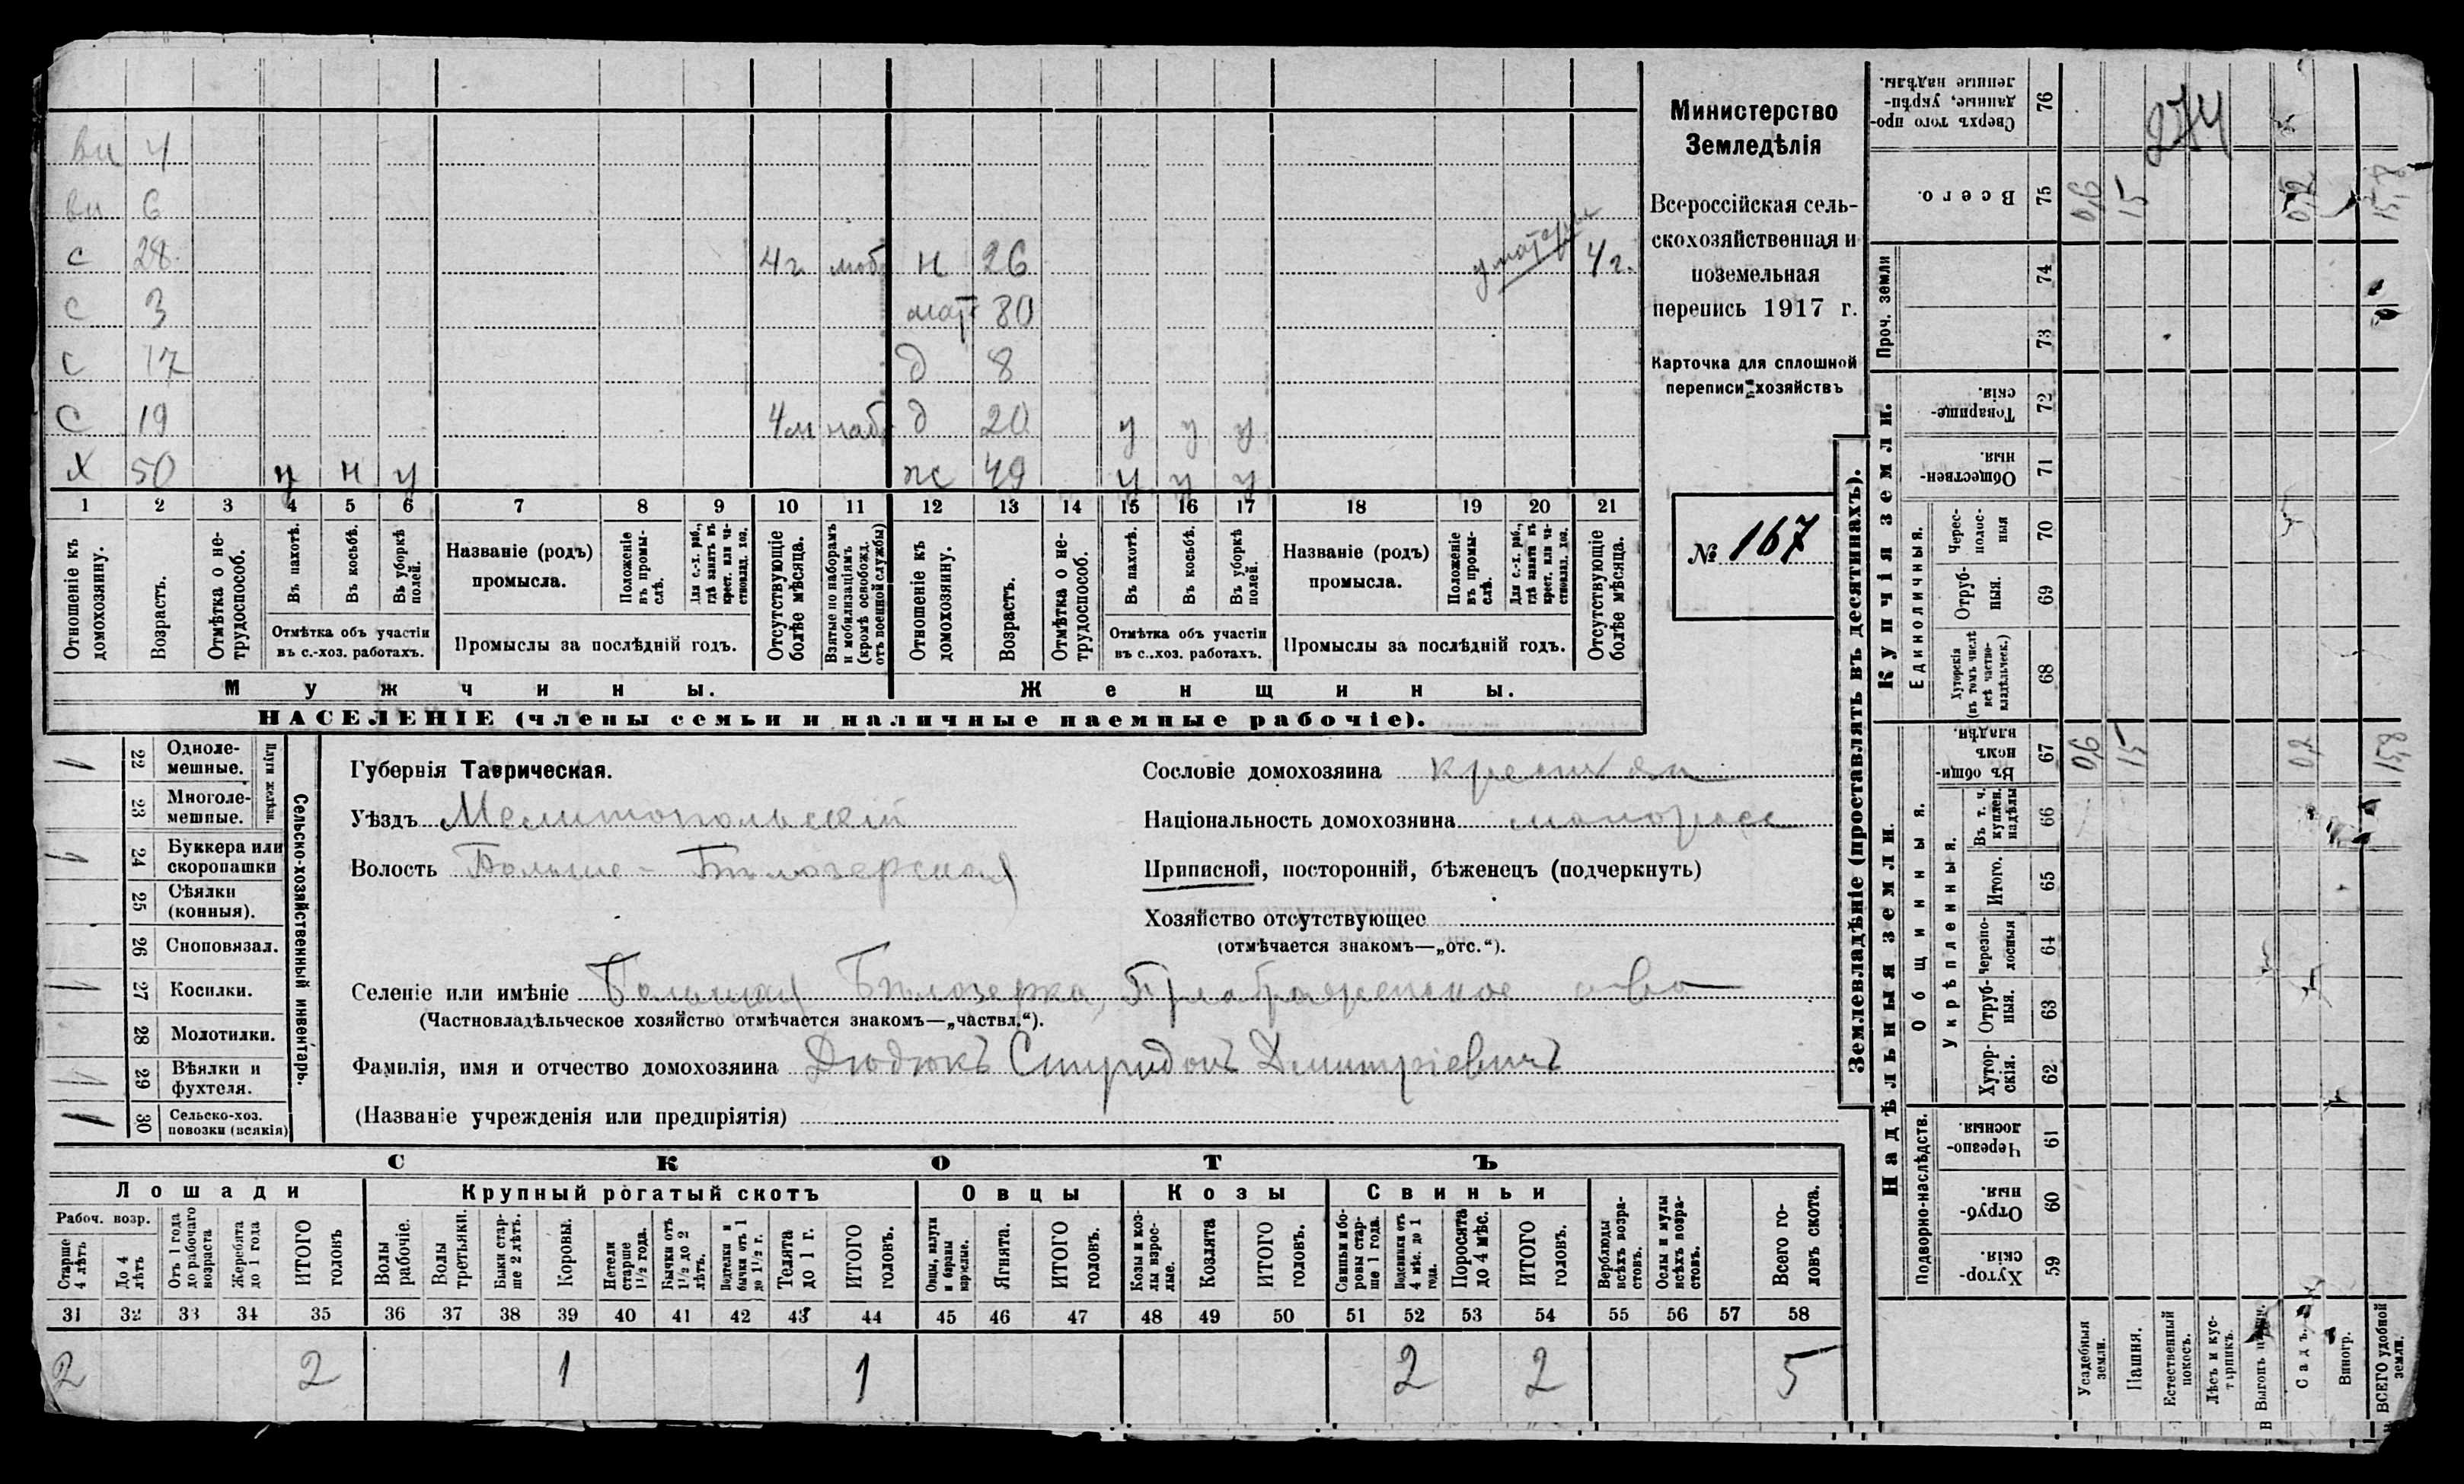 вн 4
вн 6
с 28 4 г. моб н 26 у матери 4 г.
с 3 мат 80
с 17 д 8
с 19 4 м наб д 20 у у у
х 50 у н у ж 49 у у у
1 2 3 4 5 6 7 8 9 10 11 12 13 14 15 16 17 18 19 20 21
Отношеніе къ домохозяину.
Возрастъ.
Отмѣтка о нетрудоспособ.
Въ пахотѣ.
Въ косьбѣ.
Въ уборкѣ полей.
Отмѣтка объ участіи
въ с.-хоз. работахъ.
Названіе (родъ)
промысла.
Положеніе въ промыслѣ.
Для с.-х. раб., гдѣ занятъ въ крест. или частновлад. хоз.
Промыслы за послѣдній годъ.
Отсутствующіе болѣе мѣсяца.
Взятые по наборамъ и мобилизаціямъ (кромѣ освобожд. отъ военной службы)
Отношеніе къ домохозяину.
Возрастъ.
Отмѣтка о нетрудоспособ.
Въ пахотѣ.
Въ косьбѣ.
Въ уборкѣ полей.
Отмѣтка объ участіи
въ с.-хоз. работахъ.
Названіе (родъ)
промысла.
Положеніе въ промыслѣ.
Для с.-х. раб., гдѣ занятъ въ крест. или частновлад. хоз.
Промыслы за послѣдній годъ.
Отсутствующіе болѣе мѣсяца.
Мужчины. Женщины.
НАСЕЛЕНІЕ (члены семьи и наличные наемные рабочіе).
Министерство
Земледѣлія
Всероссійская сель-
скохозяйственная и
поземельная
перепись 1917 г.
Карточка для сплошной
переписи хозяйствъ
№ 167
Сельско-хозяйственный инвентарь.
Плуги желѣзн.
1 22 Одноле-
мешные.
23 Многоле-
мешные.
1 24 Буккера или
скоропашки
25 Сѣялки
(конныя).
26 Сноповязал.
1 27 Косилки.
28 Молотилки.
1 29 Вѣялки и
фухтеля.
1 30 Сельско-хоз.
повозки (всякія)
Губернія Таврическая.
Уѣздъ Мелитопольскій
Волость Больше-Бѣлозерская
Сословіе домохозяина крестьян
Національность домохозяина малоросс
Приписной, посторонній, бѣженецъ (подчеркнуть)
Хозяйство отсутствующее
(отмѣчается знакомъ—„отс.“).
Селеніе или имѣніе Большая Бѣлозерка, Преображенское о-во
(Частновладѣльческое хозяйство отмѣчается знакомъ—„частвл.“).
Фамилія, имя и отчество домохозяина Дюдюкъ Спиридонъ Дмитріевичъ
(Названіе учрежденія или предпріятія)
СКОТЪ
Лошади Крупный рогатый скотъ Овцы Козы Свиньи
Рабоч. возр.
Старше 4 лѣтъ
До 4 лѣтъ
Отъ 1 года до рабочаго возраста
Жеребята до 1 года
ИТОГО головъ
Волы рабочіе.
Волы третьяки.
Быки старше 2 лѣтъ.
Коровы.
Нетели старше 1½ года.
Бычки отъ 1½ до 2 лѣтъ.
Подтелки и бычки отъ 1 до 1½ г.
Телята до 1 г.
ИТОГО головъ.
Овцы, валухи и бараны взрослые.
Ягнята.
ИТОГО головъ.
Козы и козлы взрослые.
Козлята
ИТОГО головъ.
Свиньи и боровы старше 1 года.
Подсвинки отъ 4 мѣс. до 1 года.
Поросята до 4 мѣс.
ИТОГО головъ.
Верблюды всѣхъ возрастовъ.
Ослы и мулы всѣхъ возрастовъ.
Всего головъ скота.
31 32 33 34 35 36 37 38 39 40 41 42 43 44 45 46 47 48 49 50 51 52 53 54 55 56 57 58
2 2 1 1 2 2 5
Землевладѣніе (проставлять въ десятинахъ).
Купчія земли.
Проч. земли
Единоличныя.
Надѣльныя земли.
Общинныя.
Укрѣпленныя.
Подворно-наслѣдств.
Сверхъ того проданные, укрѣпленные надѣлы. 76 274
Всего. 75 0,6 15 0,2 15,8
74
73
Товарищескія. 72
Общественныя. 71
Чересполосныя 70
Отрубныя. 69
Хуторскія (въ томъ числѣ всѣ частновладѣльческ.) 68
Въ общинномъ владѣн. 67 0,6 15 0,2 15,8
Въ т. ч. куплен. надѣлы 66
Итого. 65
Черезполосныя 64
Отрубныя. 63
Хуторскія. 62
Черезполосныя. 61
Отрубныя. 60
Хуторскія. 59
Усадебныя земли.
Пашня.
Естественный покосъ.
Лѣсъ и кустарникъ.
Выгонъ
Садъ.
Виногр.
ВСЕГО удобной земли.